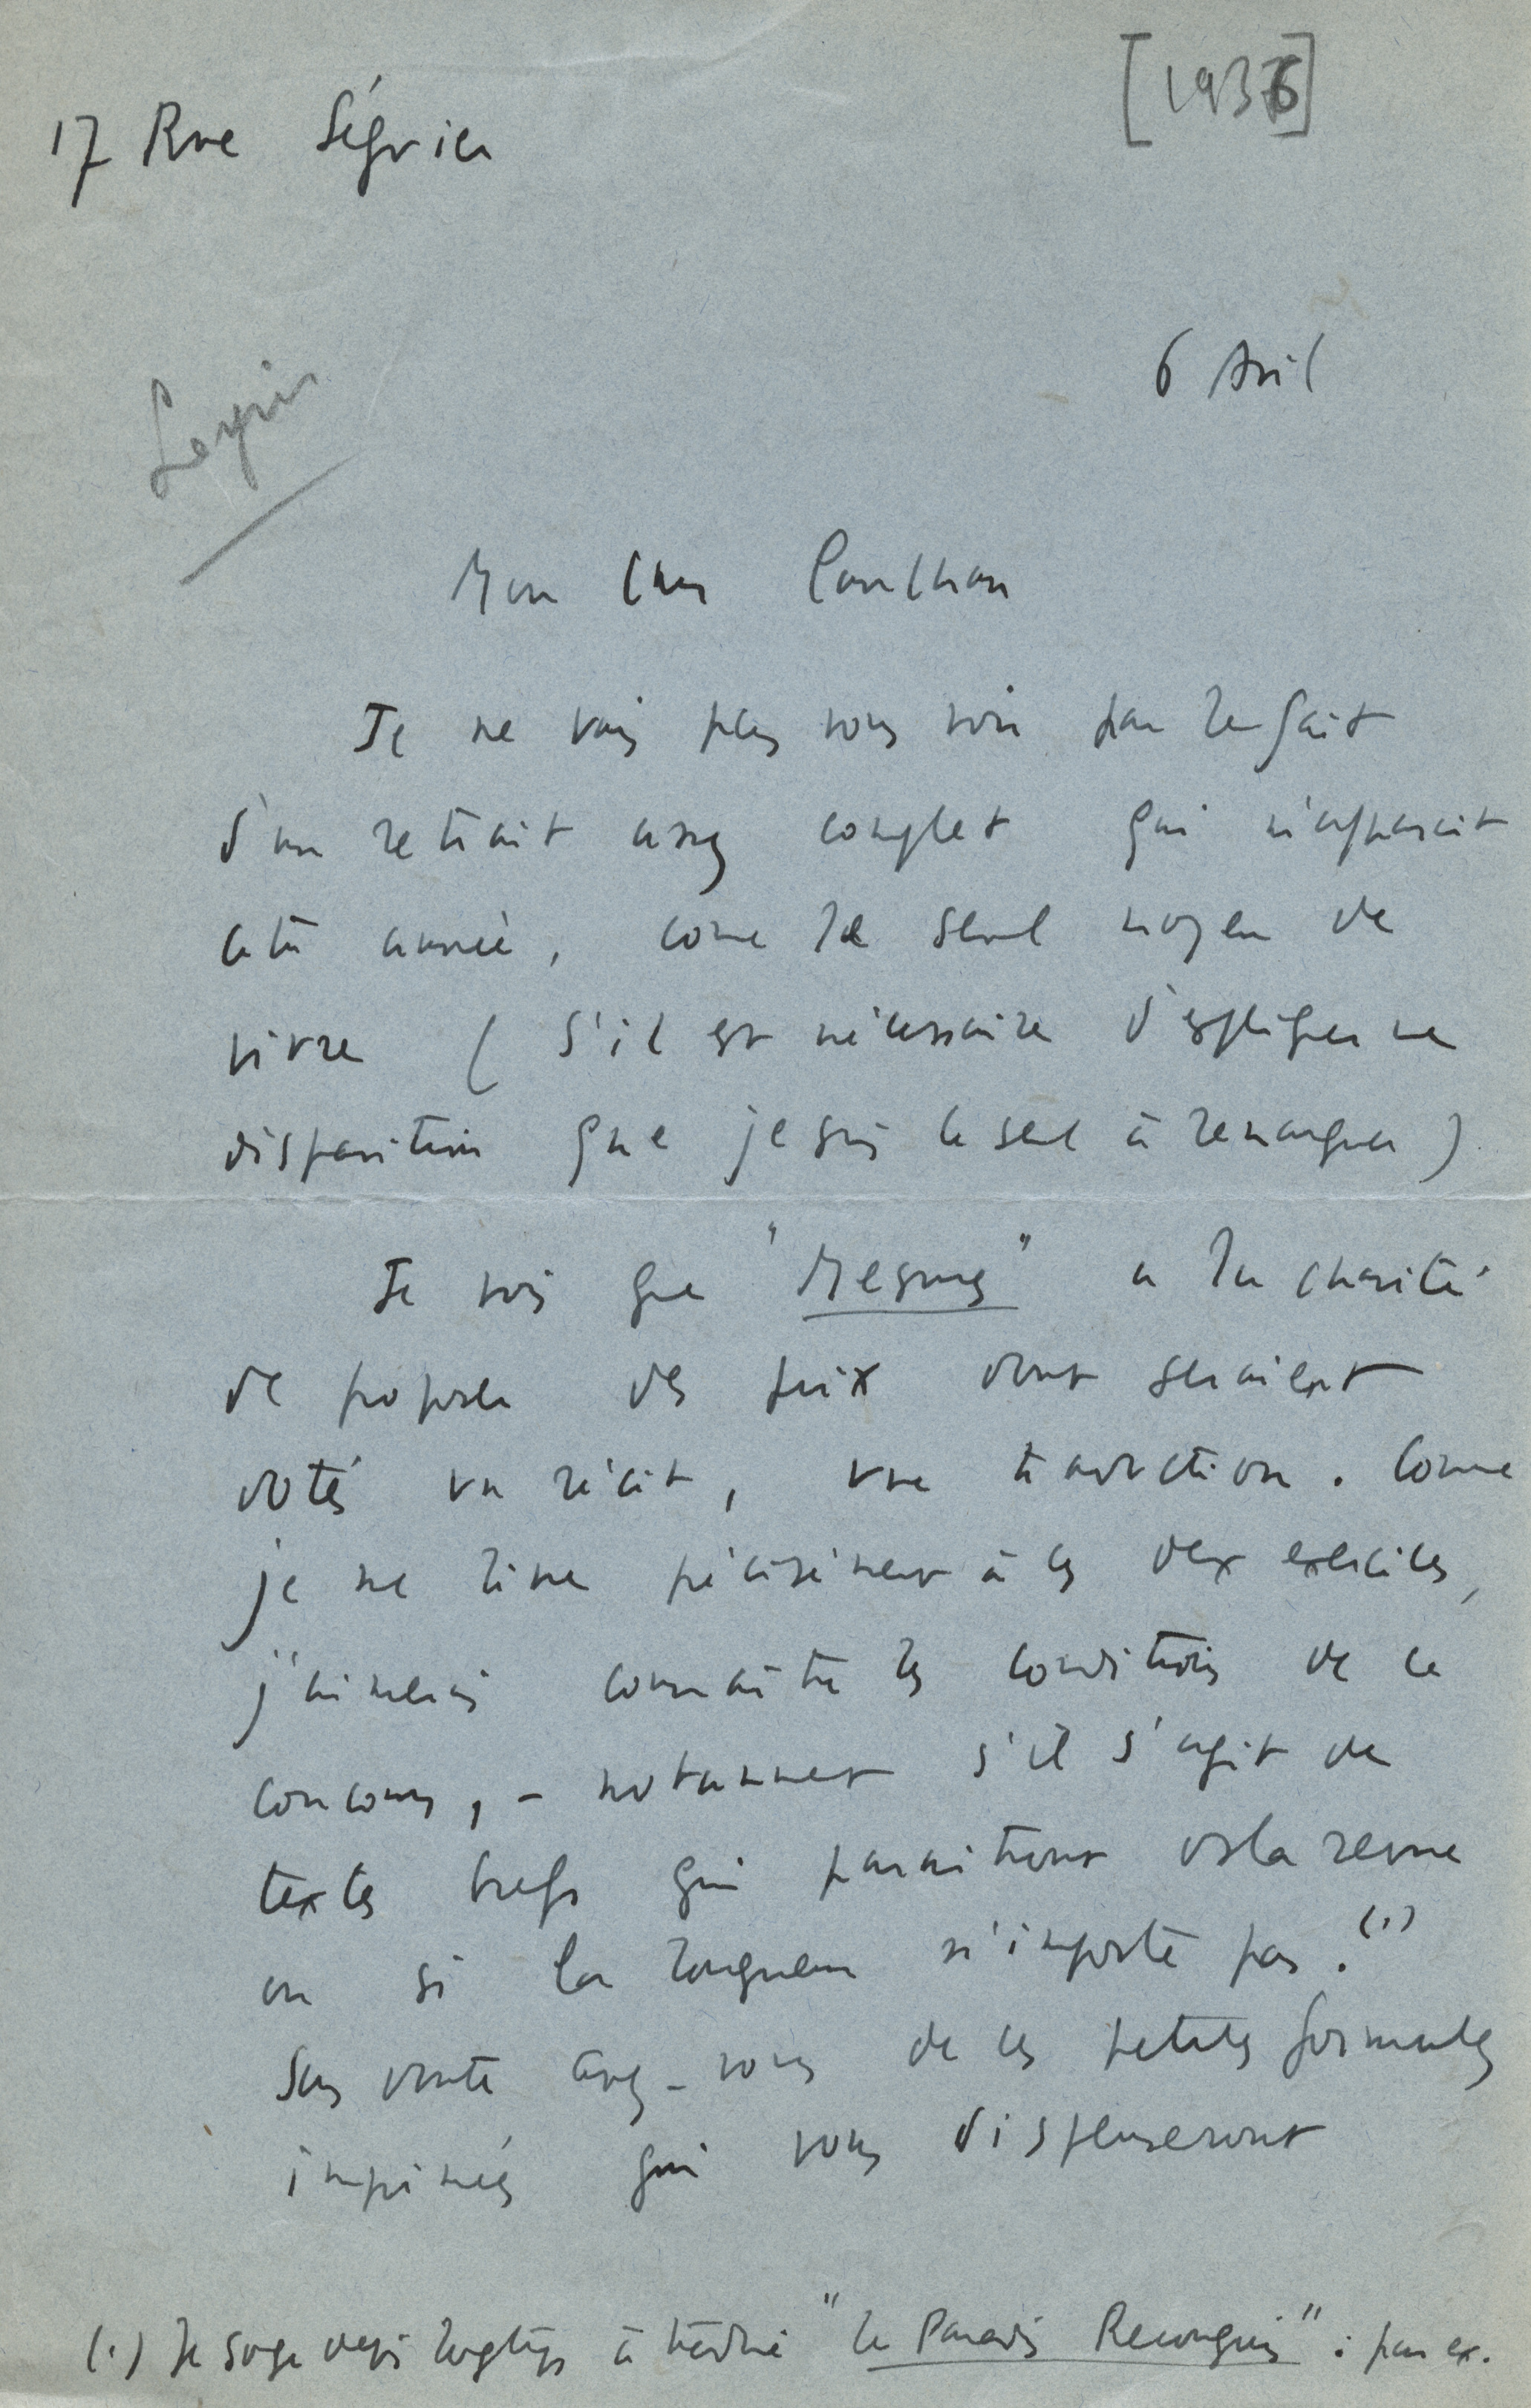 [1936]
17 Rue Séguier
6 Avril
Mon cher Paulhan
Je ne vais plus vous voir par le fait
d'un retrait assez complet qui m'apparait
cette année, comme le seul moyen de
vivre (s'il est nécessaire d'expliquer une
disparition que je suis le seul à remarquer)
Je vois que "Mesures" a la charité
de proposer des prix dont seraient
dotés un récit, une traduction. Comme
je me livre précisément à ces deux exercices,
j'aimerais connaître les conditions de ce
concours, - notamment s'il s'agit de
textes brefs qui paraîtront ds la revue
ou si la longueur n'importe pas. (1)
Sans doute avez-vous de ces petites formules
imprimées qui vous dispenseront
(1) Je songe depuis longtemps à traduire "le Paradis Reconquis" : par ex.